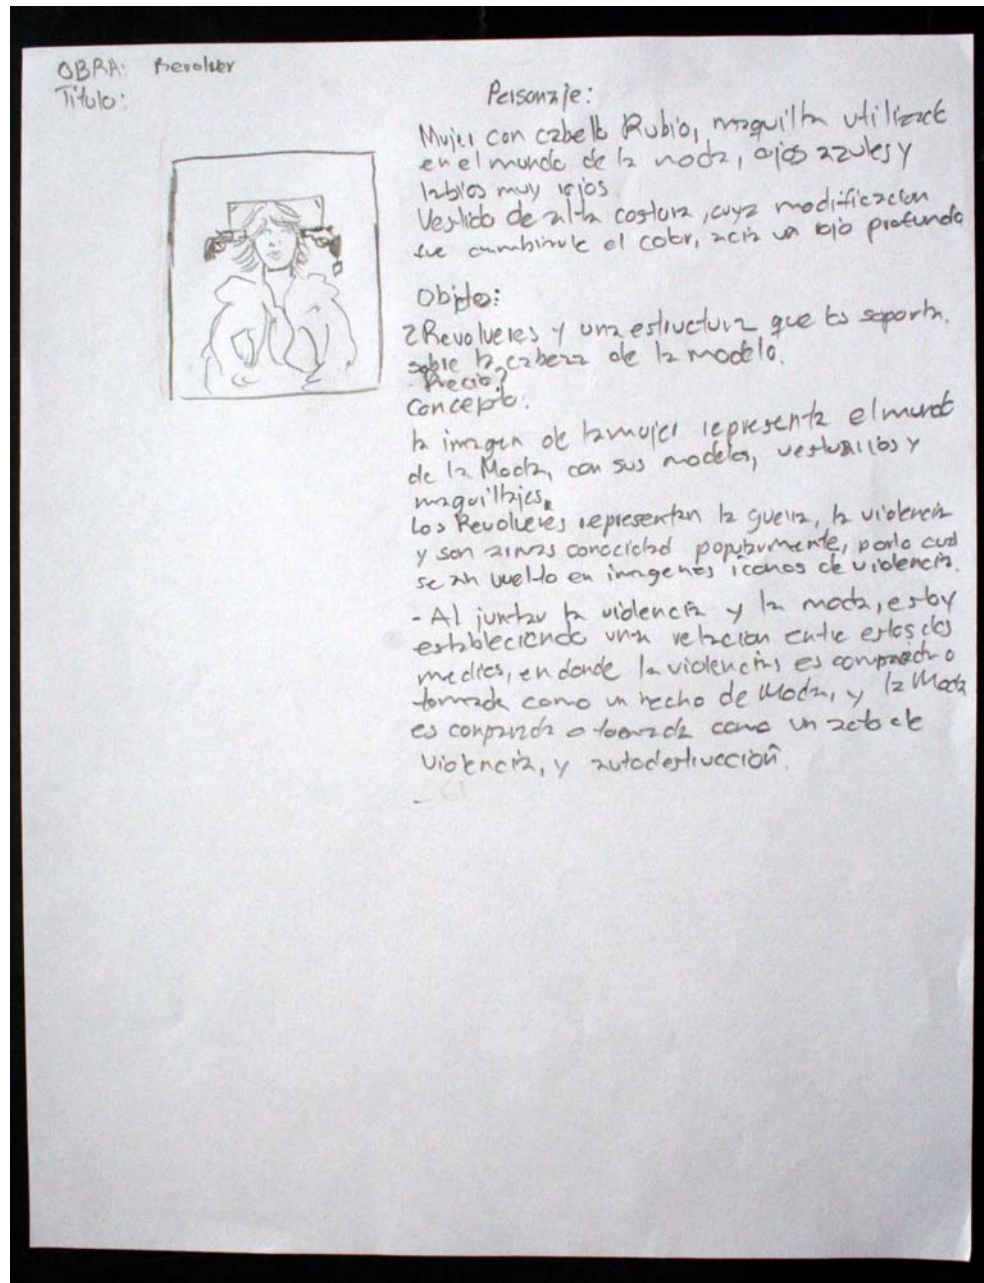 OBRA: Revolver
Titulo:
Personaje:
Mujer con cabello Rubio, maquilla utilizada
en el mundo de la moda, ojos azules y
labios muy rojos
Vestido de alta costura, cuya modificacion
fue el color, acia un rojo profundo
Objeto:
2 Revolveres y una estructura que los soporta.
sobre la cabeza de la modelo.
Recio?
Concepto:
la imagen de la mujer representa el mundo
de la Moda, con sus modelos, vestuarios y
maquillajes.
Los Revolveres representan la guerra, la violencia
y son armas conocidad popularmente, por lo cual
se an vuelto en imagenes iconos de violencia.
- Al juntar la violencia y la moda, estoy
estableciendo una relacion entre estos dos
medios, en donde la violencias es comparada o
tomada como un hecho de Moda, y la Moda
es comparada o tomada como un acto de
violencia, y autodestrucción.